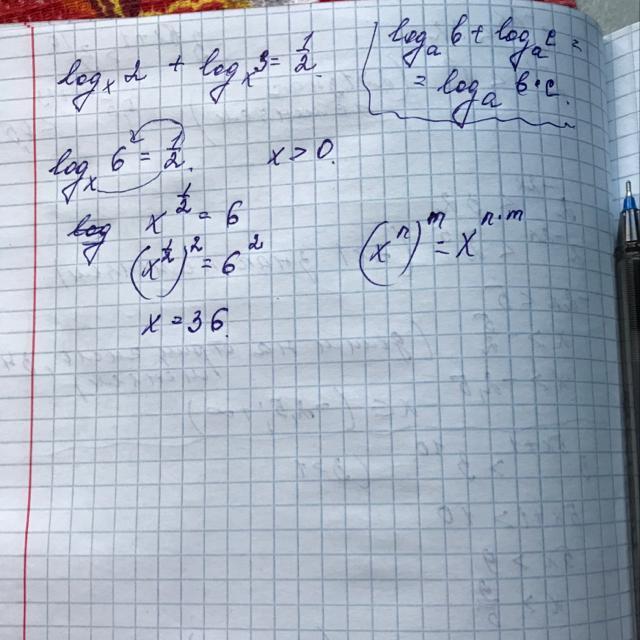 logₓ 2 + logₓ 3 = 1/2.
logₐ b + logₐ c =
= logₐ b·c.
logₓ 6 = 1/2. x > 0.
x^(1/2) = 6
(x^(1/2))^2 = 6^2
(x^n)^m = x^(n·m)
x = 36.